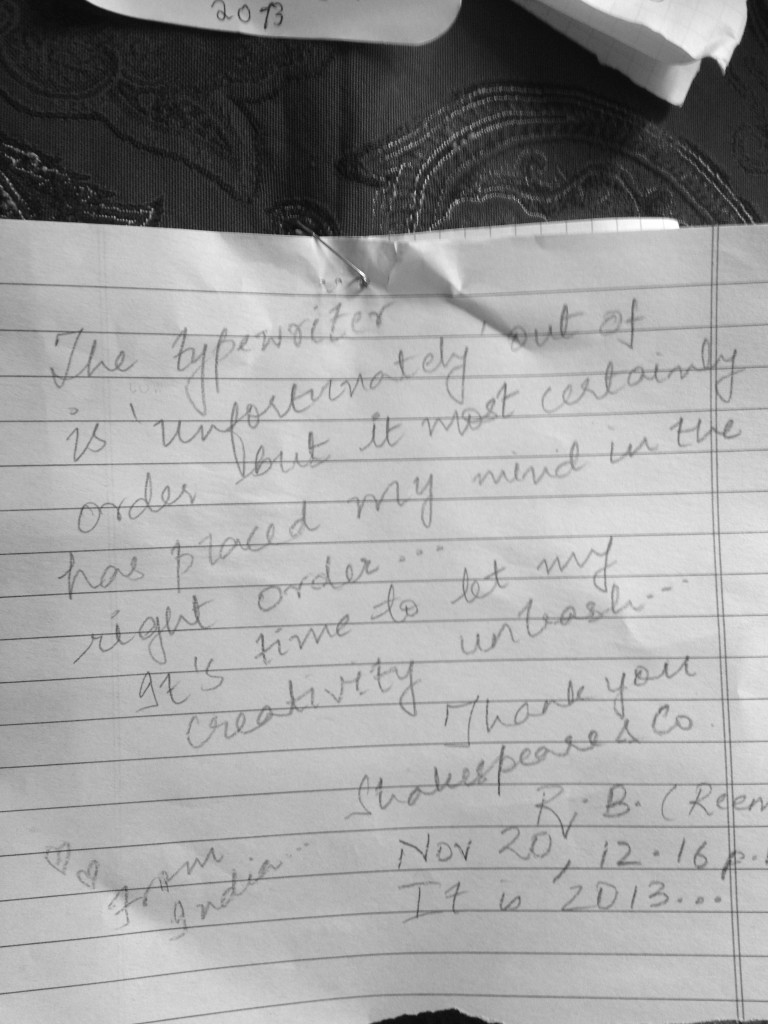 2013
The typewriter
is unfortunately out of
order but it most certainly
has placed my mind in the
right order...
It's time to let my
creativity unleash...
Thank you
Shakespeare & Co.
R. B. (Reem
Nov 20, 12.16 p.
It is 2013...
From
India...